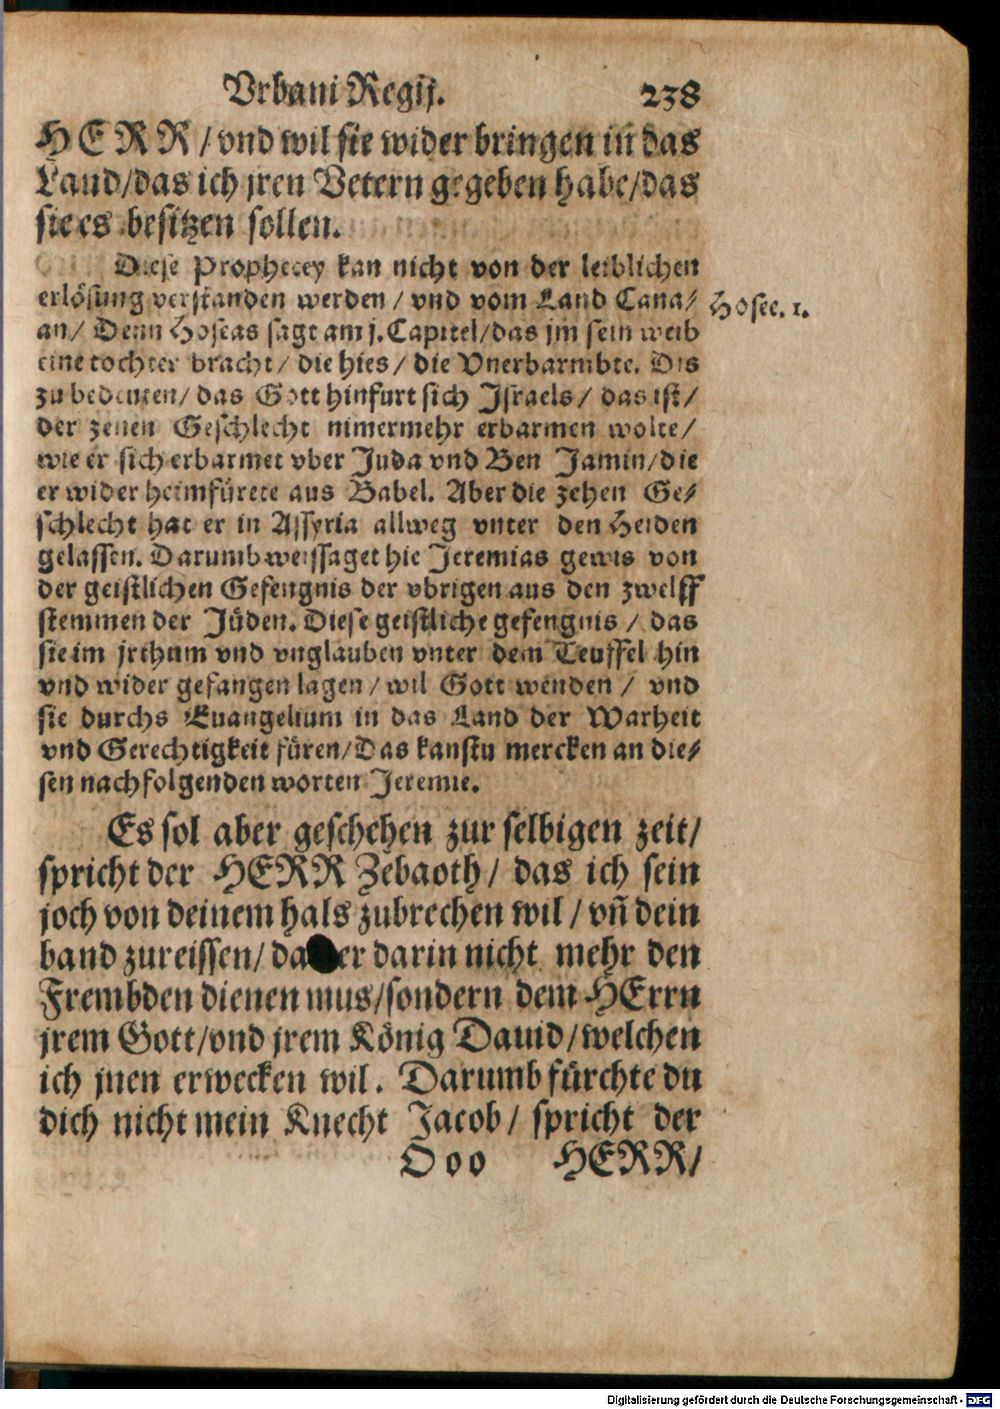 Vrbani Regij. 238
HERR/vnd wil sie wider bringen in das
Land/das ich jren Vetern gegeben habe/das
sie es besitzen sollen.
Diese Prophecey kan nicht von der leiblichen
erlösung verstanden werden/vnd vom Land Cana⸗
Hosee. 1.
an/Denn Hoseas sagt am j. Capitel/das jm sein weib
eine tochter bracht/die hies/die Vnerbarmbte. Dis
zu bedeuten/das Gott hinfurt sich Jsraels/das ist/
der zehen Geschlecht nimermehr erbarmen wolte/
wie er sich erbarmet vber Juda vnd Ben Jamin/die
er wider heimfürete aus Babel. Aber die zehen Ge⸗
schlecht hat er in Assyria allweg vnter den Heiden
gelassen. Darumb weissaget hie Jeremias gewis von
der geistlichen Gefengnis der vbrigen aus den zwelff
stemmen der Jüden. Diese geistliche gefengnis/das
sie im jrthum vnd vnglauben vnter dem Teuffel hin
vnd wider gefangen lagen/wil Gott wenden/vnd
sie durchs Euangelium in das Land der Warheit
vnd Gerechtigkeit füren/Das kanstu mercken an die⸗
sen nachfolgenden worten Jeremie.
Es sol aber geschehen zur selbigen zeit/
spricht der HERR Zebaoth/das ich sein
joch von deinem hals zubrechen wil/vñ dein
band zureissen/ er darin nicht mehr den
Frembden dienen mus/sondern dem HErrn
jrem Gott/vnd jrem König Dauid/welchen
ich jnen erwecken wil. Darumb fürchte du
dich nicht mein Knecht Jacob/spricht der
Ooo HERR/
Digitalisierung gefördert durch die Deutsche Forschungsgemeinschaft - DFG